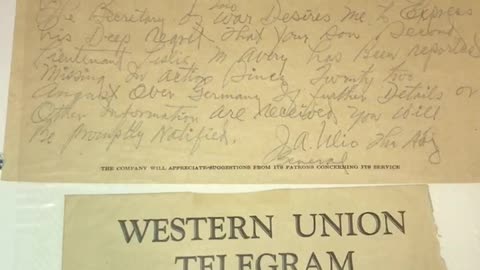 The Secretary of War Desires Me To Express
his Deep Regret That Your Son Second
Lieutenant Leslie M Avery has Been reported
Missing In action Since Twenty two
August Over Germany If further Details or
Other Information are Received You Will
Be Promptly Notified. J.A. Ulio The Adj
General
THE COMPANY WILL APPRECIATE SUGGESTIONS FROM ITS PATRONS CONCERNING ITS SERVICE
WESTERN UNION
TELEGRAM